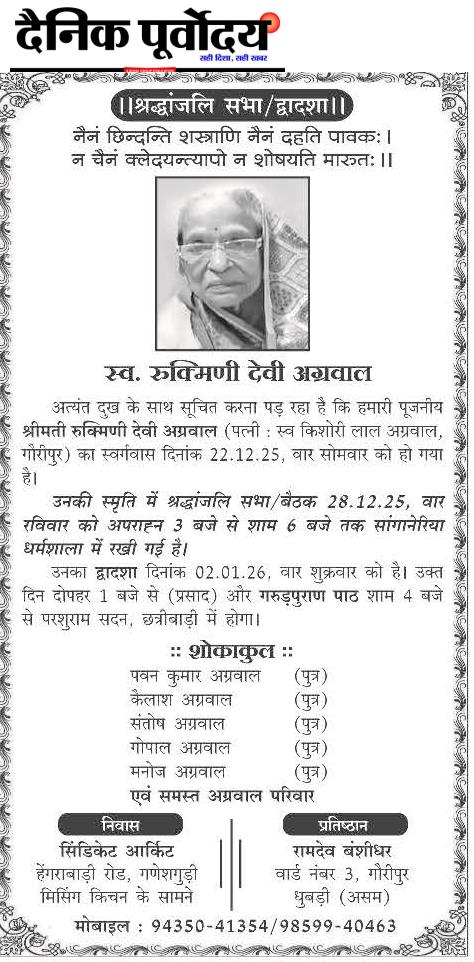 दैनिक पूर्वोदय
सही दिशा, सही खबर
।।श्रद्धांजलि सभा/द्वादशा।।
नैनं छिन्दन्ति शस्त्राणि नैनं दहति पावकः।
न चैनं क्लेदयन्त्यापो न शोषयति मारुतः।।
स्व. रुक्मिणी देवी अग्रवाल
अत्यंत दुख के साथ सूचित करना पड़ रहा है कि हमारी पूजनीय
श्रीमती रुक्मिणी देवी अग्रवाल (पत्नी : स्व किशोरी लाल अग्रवाल,
गौरीपुर) का स्वर्गवास दिनांक 22.12.25, वार सोमवार को हो गया
है।
उनकी स्मृति में श्रद्धांजलि सभा/बैठक 28.12.25, वार
रविवार को अपराह्न 3 बजे से शाम 6 बजे तक सांगानेरिया
धर्मशाला में रखी गई है।
उनका द्वादशा दिनांक 02.01.26, वार शुक्रवार को है। उक्त
दिन दोपहर 1 बजे से (प्रसाद) और गरुड़पुराण पाठ शाम 4 बजे
से परशुराम सदन, छत्रीबाड़ी में होगा।
:: शोकाकुल ::
पवन कुमार अग्रवाल (पुत्र)
कैलाश अग्रवाल (पुत्र)
संतोष अग्रवाल (पुत्र)
गोपाल अग्रवाल (पुत्र)
मनोज अग्रवाल (पुत्र)
एवं समस्त अग्रवाल परिवार
निवास
सिंडिकेट आर्किट
हेंगराबाड़ी रोड, गणेशगुड़ी
मिसिंग किचन के सामने
प्रतिष्ठान
रामदेव बंशीधर
वार्ड नंबर 3, गौरीपुर
धुबड़ी (असम)
मोबाइल : 94350-41354/98599-40463